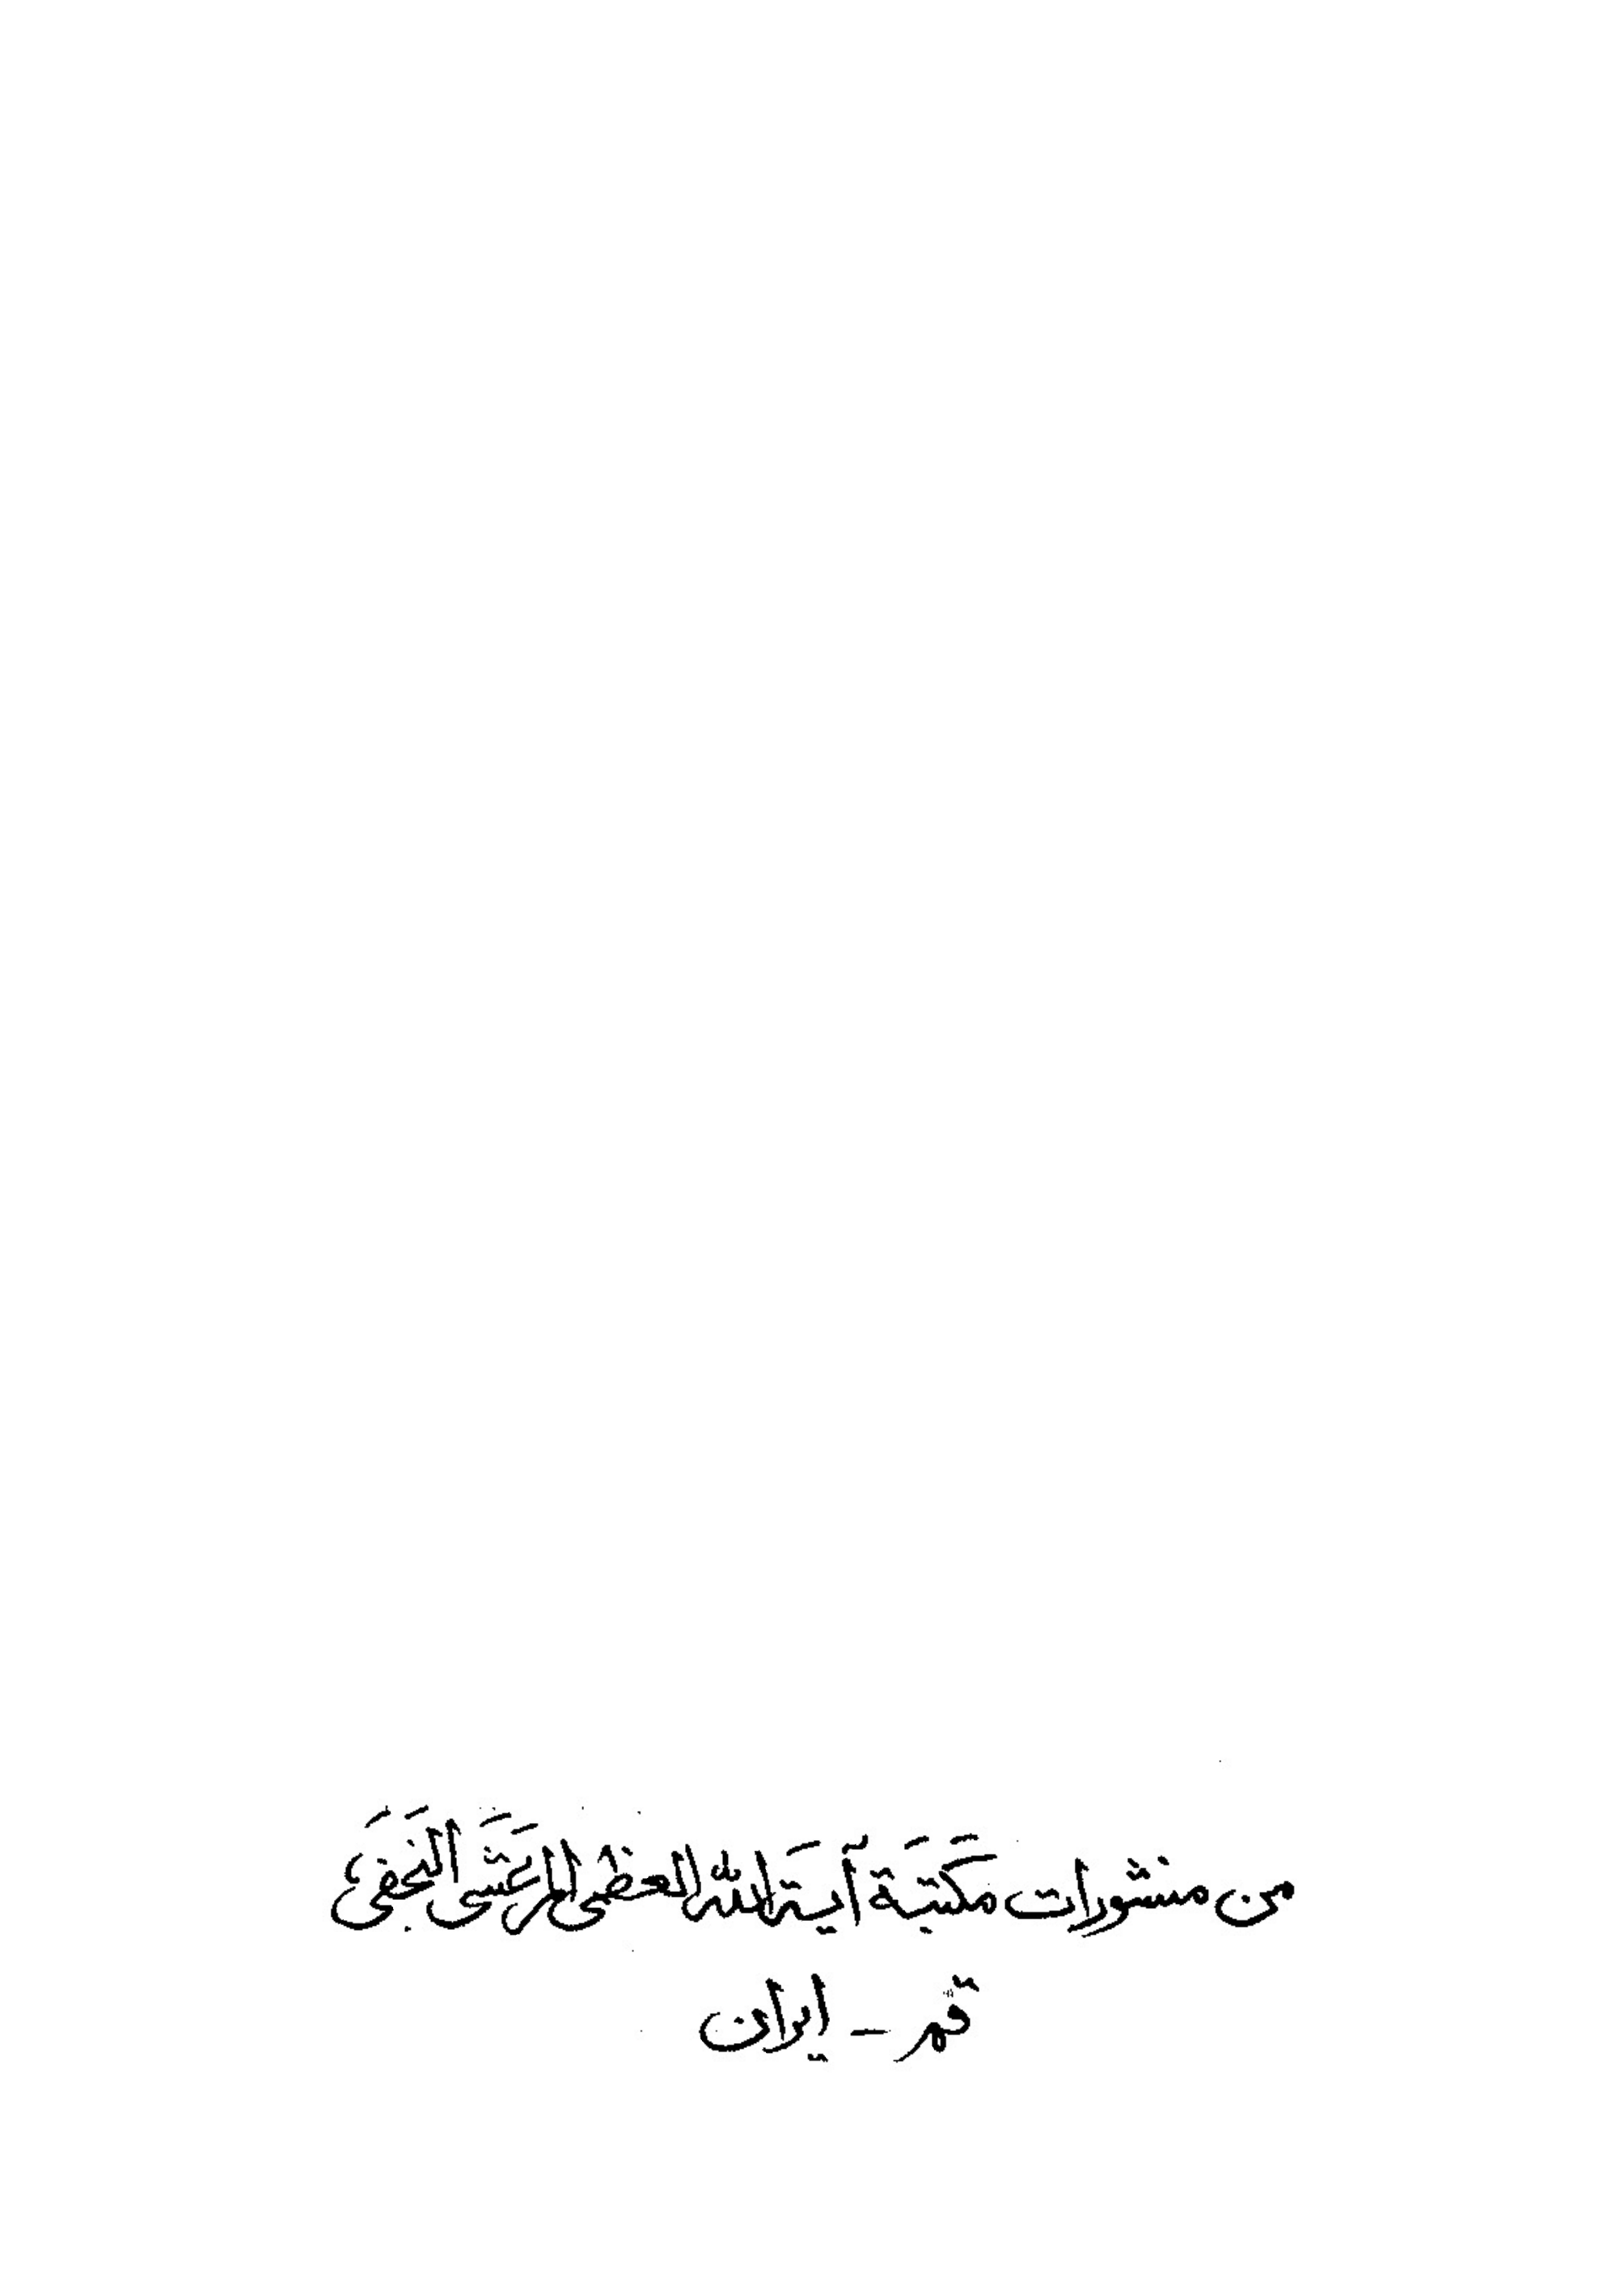 من منشورات مكتَبَة آيَة الله العظمى المرعَشَى النجَفَى
قم - ايران